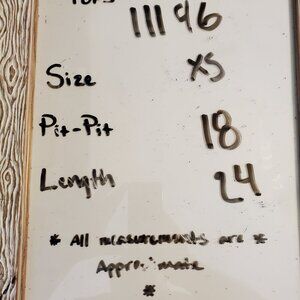 11196
Size XS
Pit-Pit 18
Length 24
* All measurements are *
Approximate
*